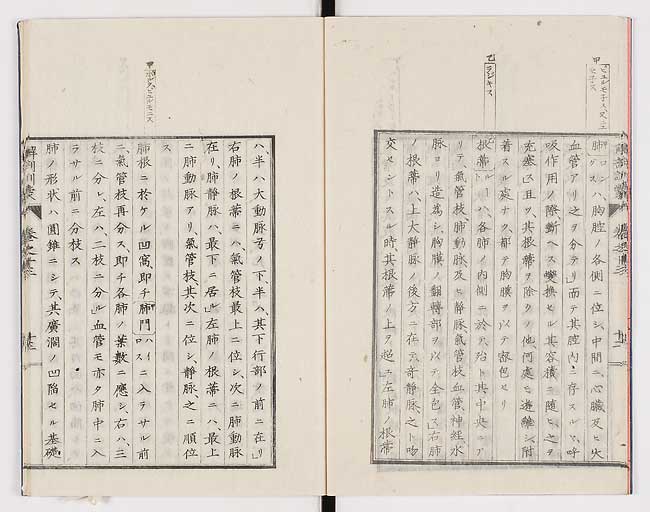 肺ハ胸腔ノ各側ニ位シ、中間ニ心臓及ヒ大
血管アリ之ヲ分テリ」而テ其腔内ニ存スルヤ、呼
吸作用ノ際斷ヘス變換セル其容積ニ隨ヒ之ヲ
充塞ス、且ツ其根蒂ヲ除クノ他何處モ遊離シ附
着スル處ナク、都テ胸膜ヲ以テ密包セリ
根蒂ハ、各肺ノ内側ニ於テ殆ト其中央ニア
リテ、氣管枝、肺動脉及ヒ靜脉、氣管枝血管、神經、水
脉ヨリ造為シ、胸膜ノ翻轉部ヲ以テ全包ス」右肺
ノ根蒂ハ、上大靜脉ノ後方ニ在テ奇靜脉之ト吻
交セントスル時、其根蒂ノ上ヲ超ス」左肺ノ根蒂
ハ、半ハ大動脉弯ノ下、半ハ其下行部ノ前ニ在リ」
右肺ノ根蒂ニハ、氣管枝最上ニ位シ、次ニ肺動脉
在リ、肺靜脉ハ最下ニ居ル」左肺ノ根蒂ニハ、最上
ニ肺動脉アリ、氣管枝其次ニ位シ、靜脉之ニ順位
ス
肺根ニ於ケル凹窩即チ肺門ニ入ラサル前
ニ、氣管枝再分ス、即チ各肺ノ葉數ニ應シ、右ハ三
枝ニ分レ、左ハ二枝ニ分ル」血管モ亦タ肺中ニ入
ラサル前ニ分枝ス
肺ノ形狀ハ圓錐ニシテ、其廣濶ノ凹陷セル基礎